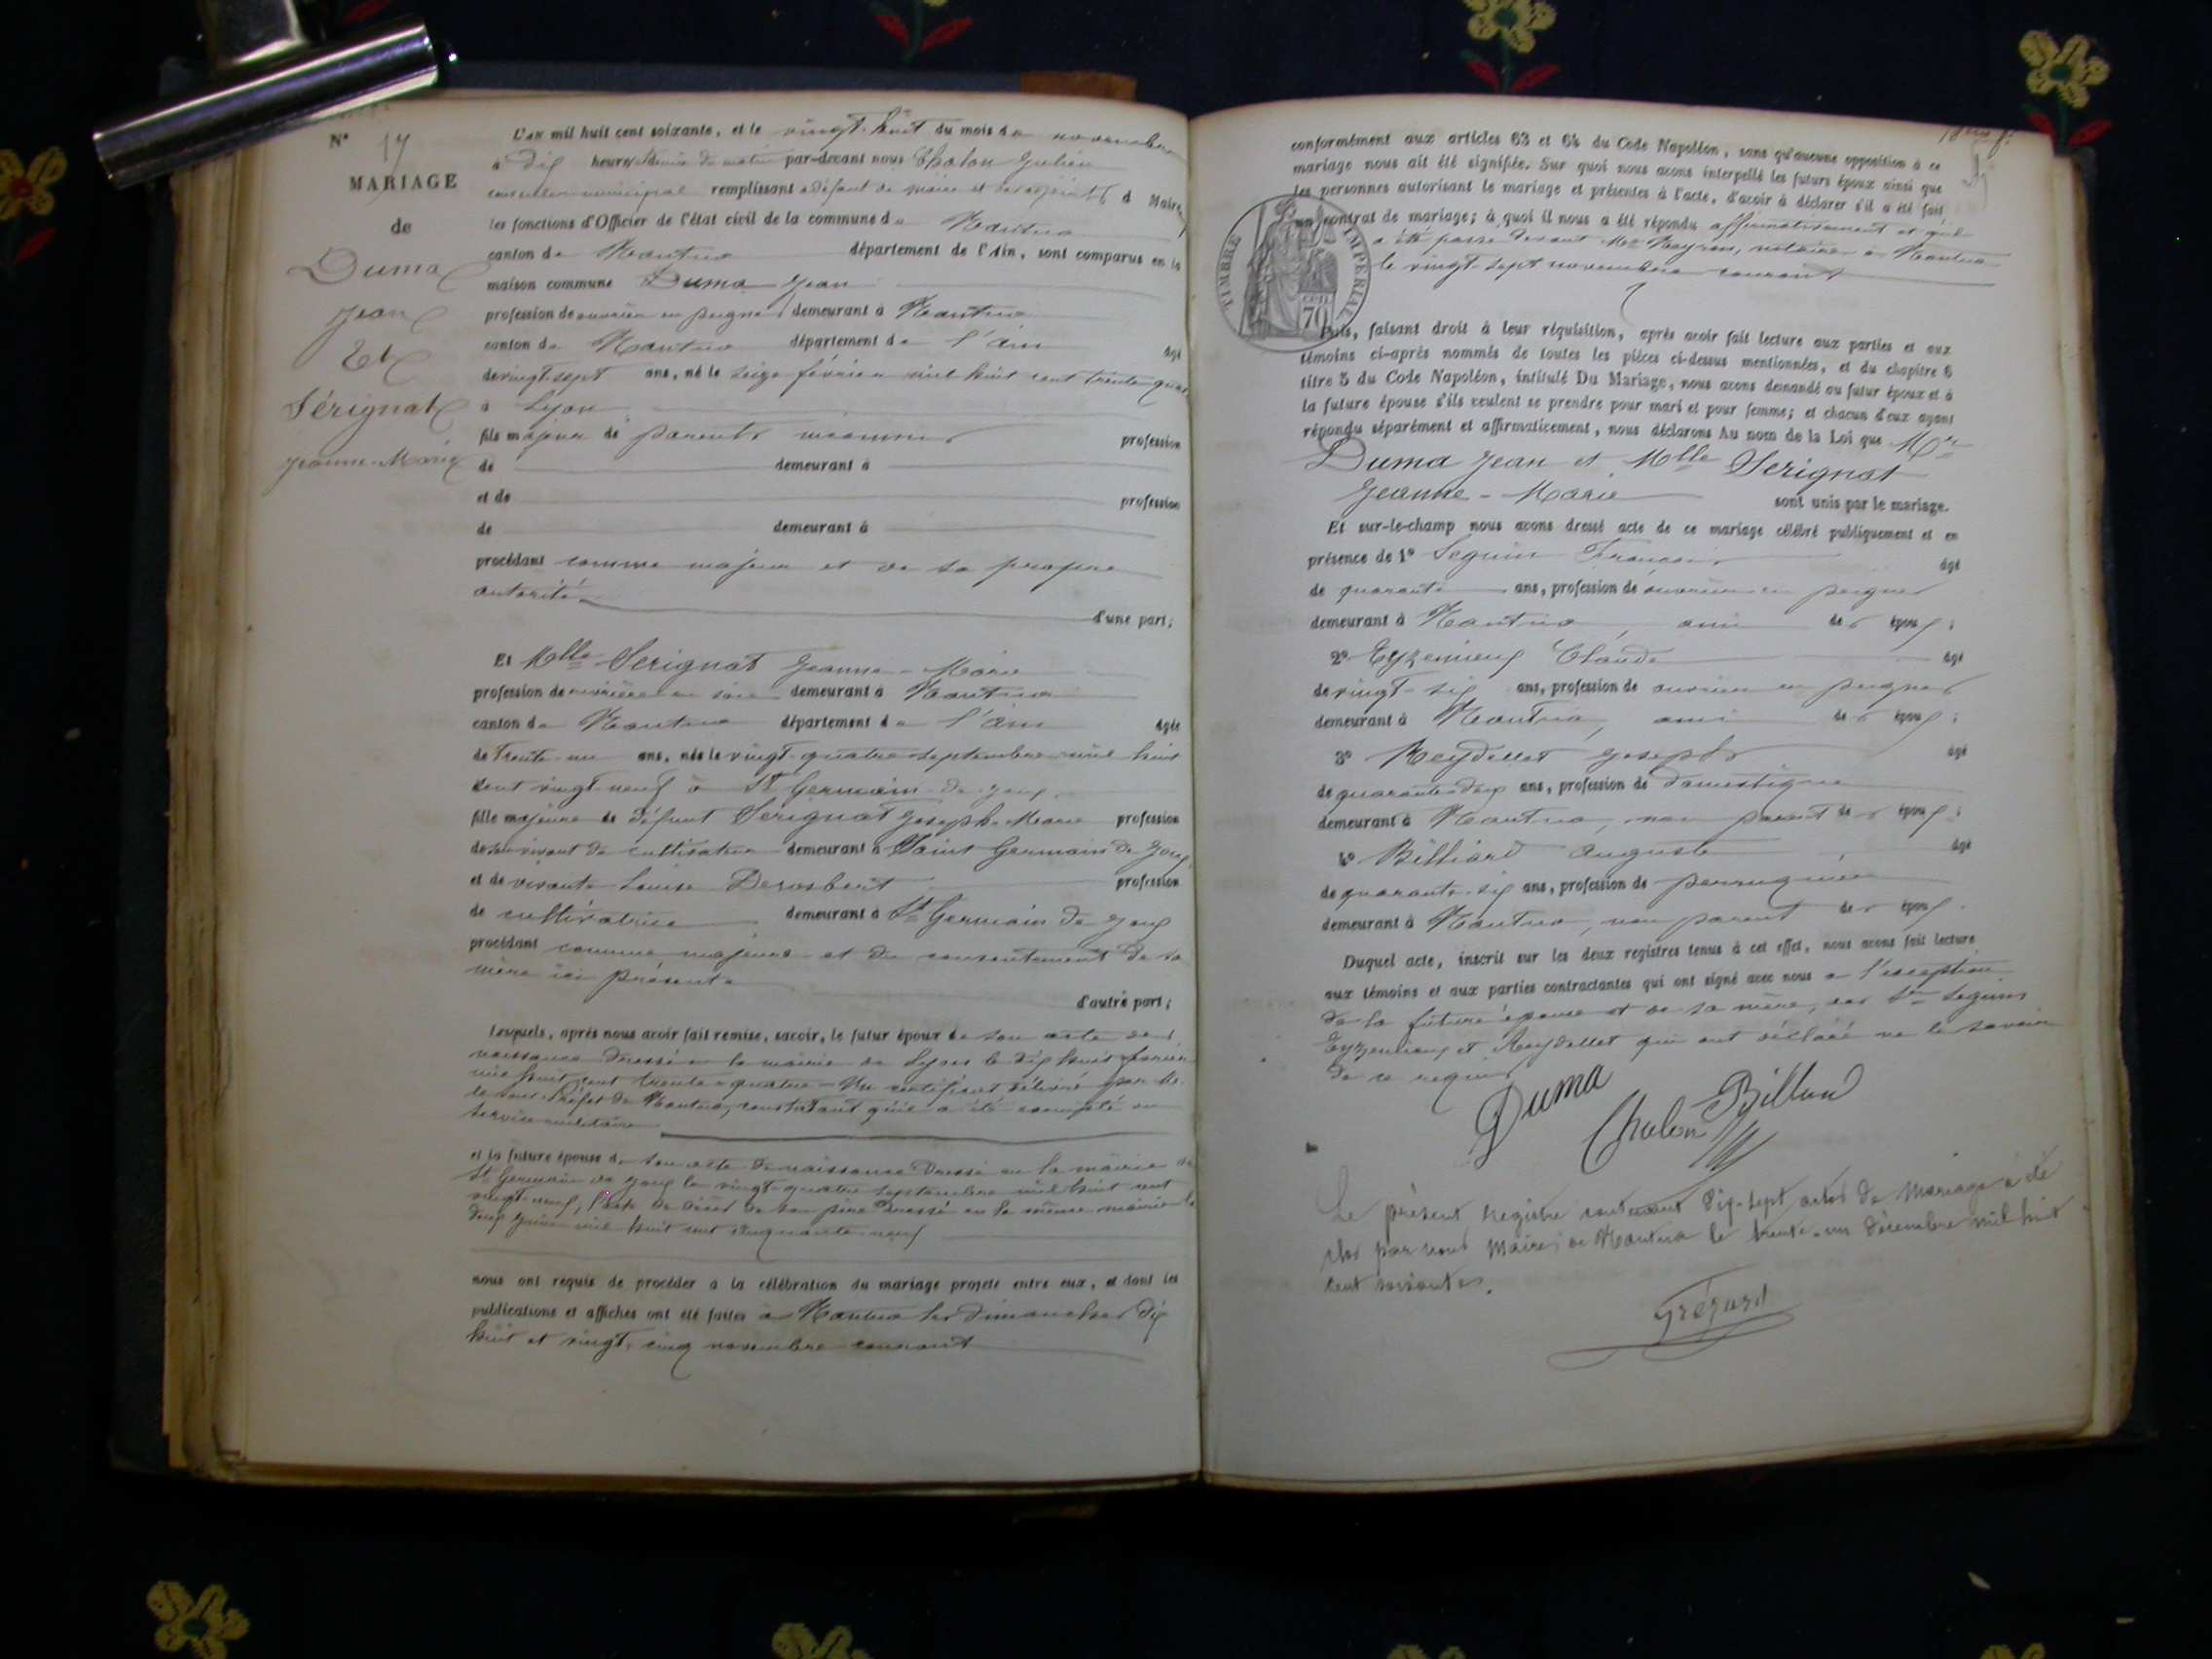 N° 17
MARIAGE
de
Duma
Jean
Et
Sérignat
Jeanne-Marie
L'an mil huit cent soixante, et le vingt-huit du mois de novembre
à dix heures du matin par-devant nous Chalon Julien
conseiller municipal remplissant à défaut de maire et des adjoints d Maire
les fonctions d'Officier de l'état civil de la commune de Nantua
canton de Nantua département de l'Ain, sont comparus en la
maison commune Duma Jean
profession de ouvrier en peignes demeurant à Nantua
canton de Nantua département de l'Ain âgé
de vingt-sept ans, né le seize février mil huit cent trente quatre
à Lyon
fils majeur de parents inconnus profession
de demeurant à
et de profession
de demeurant à
procédant comme majeur et de sa propre
autorité
d'une part;
Et Mlle Serignat Jeanne-Marie
profession de ouvrière en soie demeurant à Nantua
canton de Nantua département de l'Ain âgée
de trente-un ans, née le vingt-quatre septembre mil huit
cent vingt-neuf à St Germain de Joux
fille majeure de défunt Serignat Joseph-Marie profession
de son vivant de cultivateur demeurant à Saint Germain de Joux
et de vivante Louise profession
de cultivatrice demeurant à St Germain de Joux
procédant comme majeure et du consentement de sa
mère ici présente
d'autre part;
Lesquels, après nous avoir fait remise, savoir, le futur époux de son acte de
naissance dressé à la mairie de Lyon le dix huit février
mil huit cent trente-quatre - Un certificat délivré par Mr
le sous-Préfet de Nantua, constatant qu'il a été exempté du
service militaire
et la future épouse de son acte de naissance dressé en la mairie de
St Germain de Joux le vingt-quatre septembre mil huit cent
vingt-neuf, l'acte de décès de son père dressé en la même mairie le
deux juin mil huit cent cinquante-neuf
nous ont requis de procéder à la célébration du mariage projeté entre eux, et dont les
publications et affiches ont été faites à Nantua les dimanches dix
huit et vingt-cinq novembre courant
conformément aux articles 63 et 64 du Code Napoléon, sans qu'aucune opposition à ce
mariage nous ait été signifiée. Sur quoi nous avons interpellé les futurs époux ainsi que
les personnes autorisant le mariage et présentes à l'acte, d'avoir à déclarer s'il a été fait
un contrat de mariage; à quoi il nous a été répondu affirmativement et qu'il
a été passé devant Me notaire à Nantua
le vingt-sept novembre courant
TIMBRE IMPERIAL
70
Puis, faisant droit à leur réquisition, après avoir fait lecture aux parties et aux
témoins ci-après nommés de toutes les pièces ci-dessus mentionnées, et du chapitre 6
titre 5 du Code Napoléon, intitulé Du Mariage, nous avons demandé au futur époux et à
la future épouse s'ils veulent se prendre pour mari et pour femme; et chacun d'eux ayant
répondu séparément et affirmativement, nous déclarons Au nom de la Loi que Mr
Duma Jean et Mlle Serignat
Jeanne-Marie sont unis par le mariage.
Et sur-le-champ nous avons dressé acte de ce mariage célébré publiquement et en
présence de 1° Seguin François âgé
de quarante ans, profession de ouvrier en peignes
demeurant à Nantua, ami des époux;
2° Claude âgé
de vingt-six ans, profession de ouvrier en peignes
demeurant à Nantua, ami des époux;
3° Reydellet Joseph âgé
de quarante-deux ans, profession de domestique
demeurant à Nantua, non parent des époux;
4° Billiard Auguste âgé
de quarante-six ans, profession de perruquier
demeurant à Nantua, non parent des époux.
Duquel acte, inscrit sur les deux registres tenus à cet effet, nous avons fait lecture
aux témoins et aux parties contractantes qui ont signé avec nous à l'exception
de la future épouse et de sa mère, des Srs Seguin
et Reydellet qui ont déclaré ne le savoir
de ce requis
Duma
Chalon Billiard
Le présent registre contenant dix-sept actes de Mariage a été
clos par nous Maire de Nantua le trente-un décembre mil huit
cent soixante.